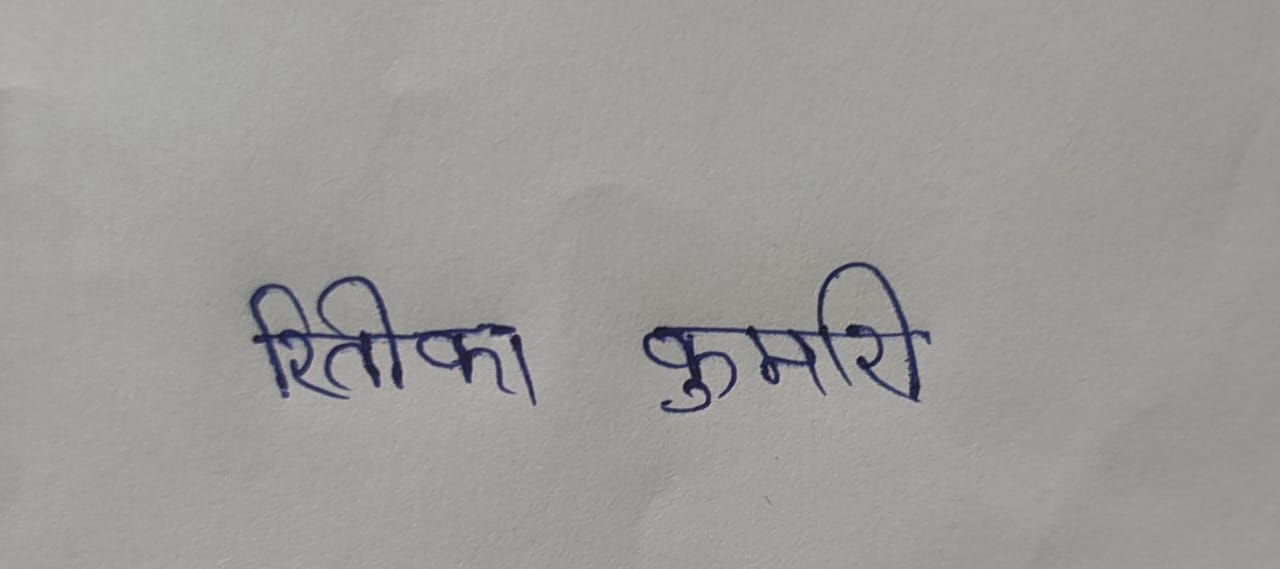 रितीका कुमारी